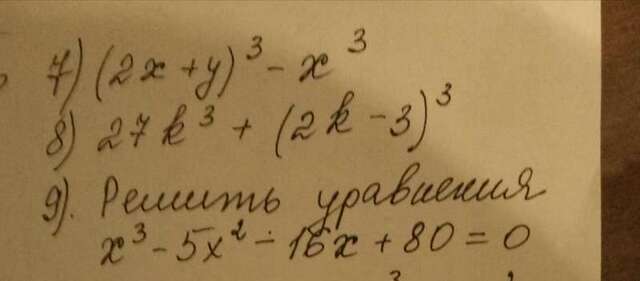 7) (2x+y)³ - x³
8) 27k³ + (2k-3)³
9). Решить уравнения
x³ - 5x² - 16x + 80 = 0